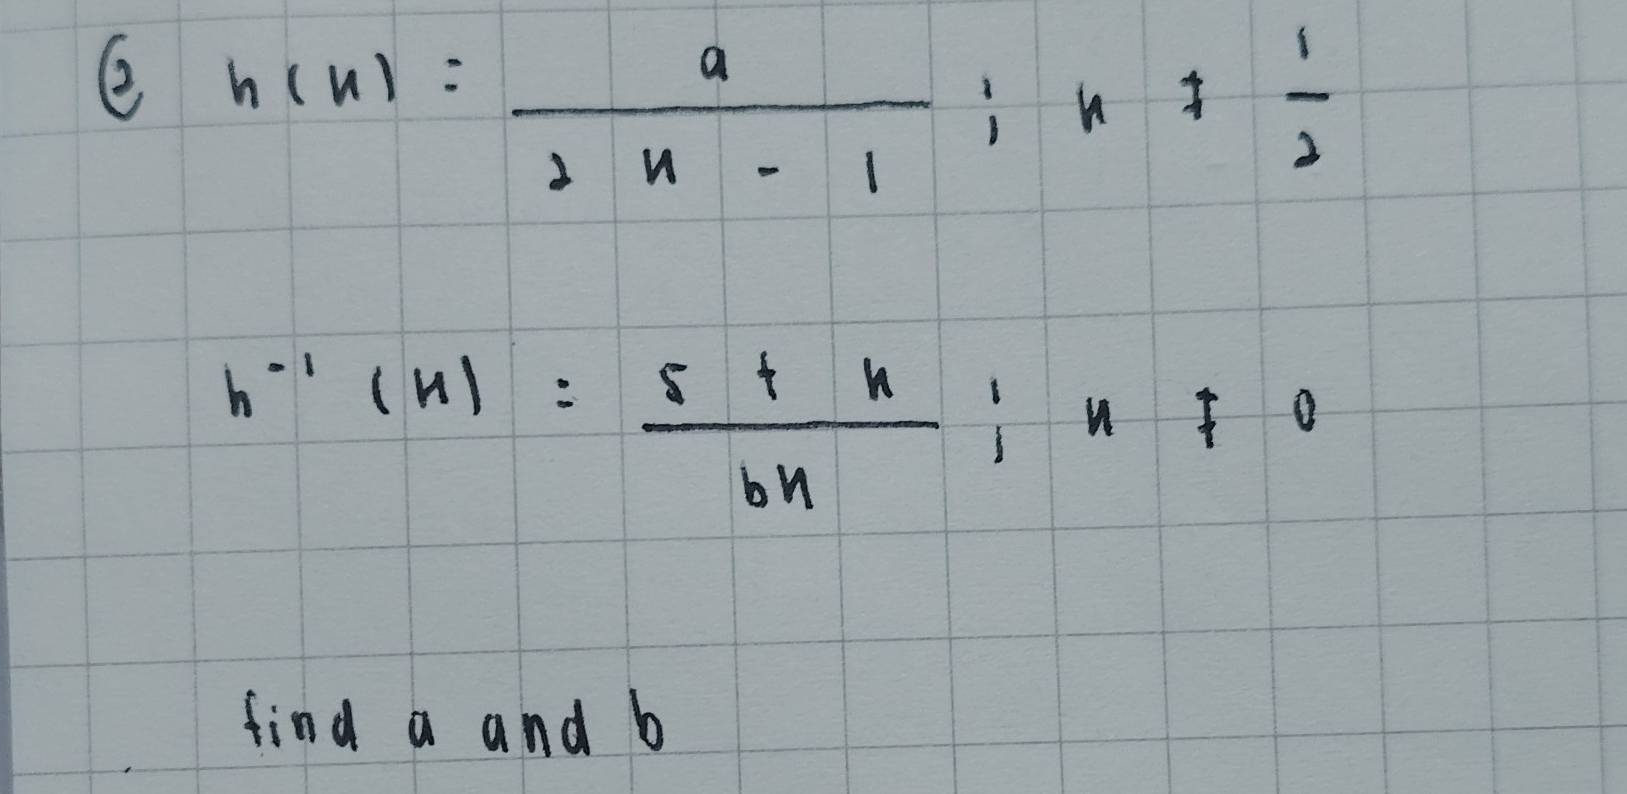 ② h(x) = a / 2x - 1 ; x ≠ 1/2
h⁻¹(x) = 5 + x / bx ; x ≠ 0
find a and b